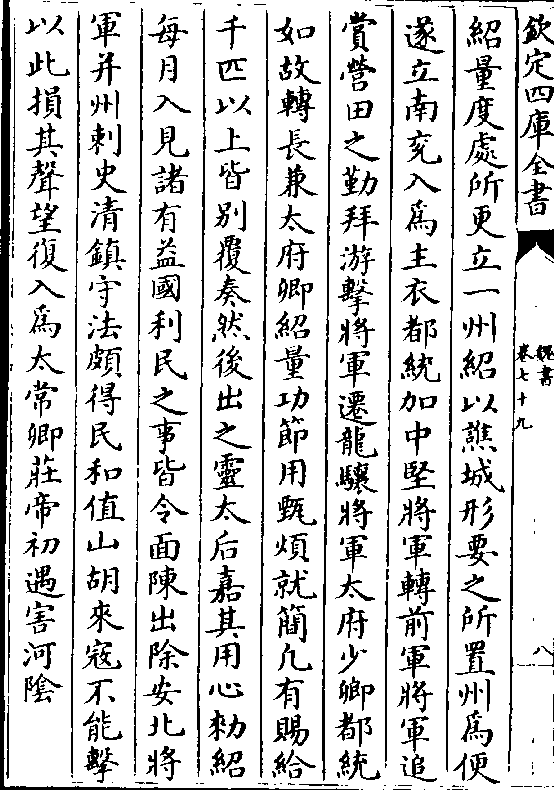 欽定四庫全書
魏書
卷七十九
八
紹量度處所更立一州紹以譙城形要之所置州為便
遂立南兗入為主衣都統加中堅將軍轉前軍將軍追
賞營田之勤拜游擊將軍遷龍驤將軍太府少卿都統
如故轉長兼太府卿紹量功節用甄煩就簡凡有賜給
千匹以上皆別覆奏然後出之靈太后嘉其用心勑紹
每月入見諸有益國利民之事皆令面陳出除安北將
軍并州刺史清鎮守法頗得民和值山胡來寇不能擊
以此損其聲望復入為太常卿莊帝初遇害河陰